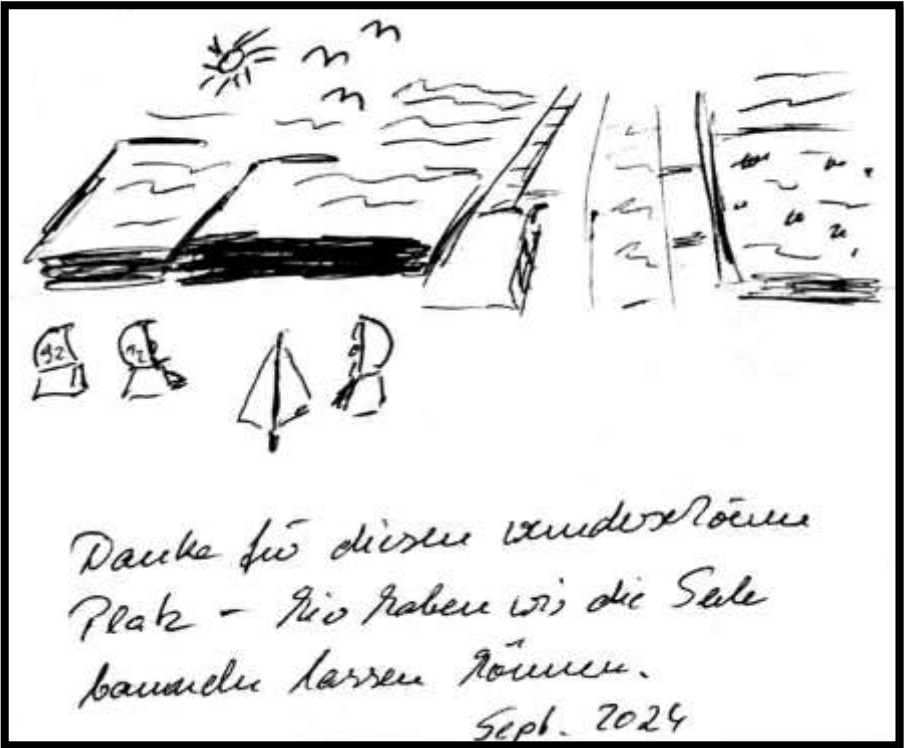 92
92
Danke für diesen wunderschönen
Platz – hier haben wir die Seele
baumeln lassen können.
Sept. 2024